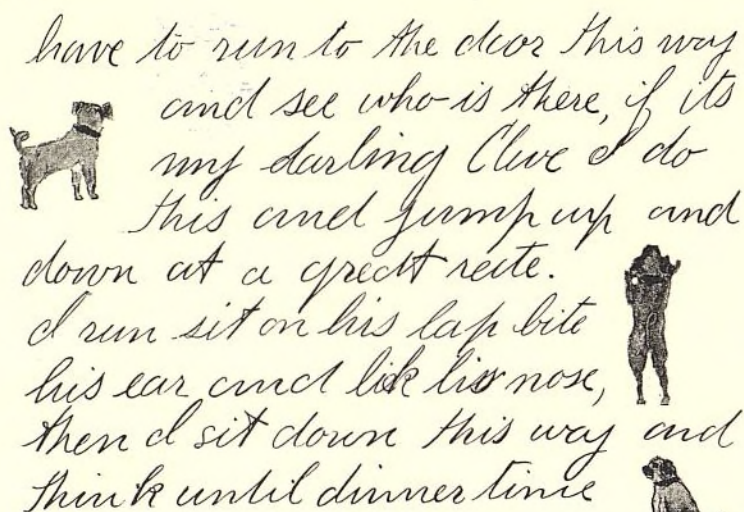 have to run to the door this way
and see who is there, if its
my darling Clive I do
this and jump up and
down at a great rate.
I run sit on his lap bite
his ear and lik his nose,
then I sit down this way and
think until dinner time